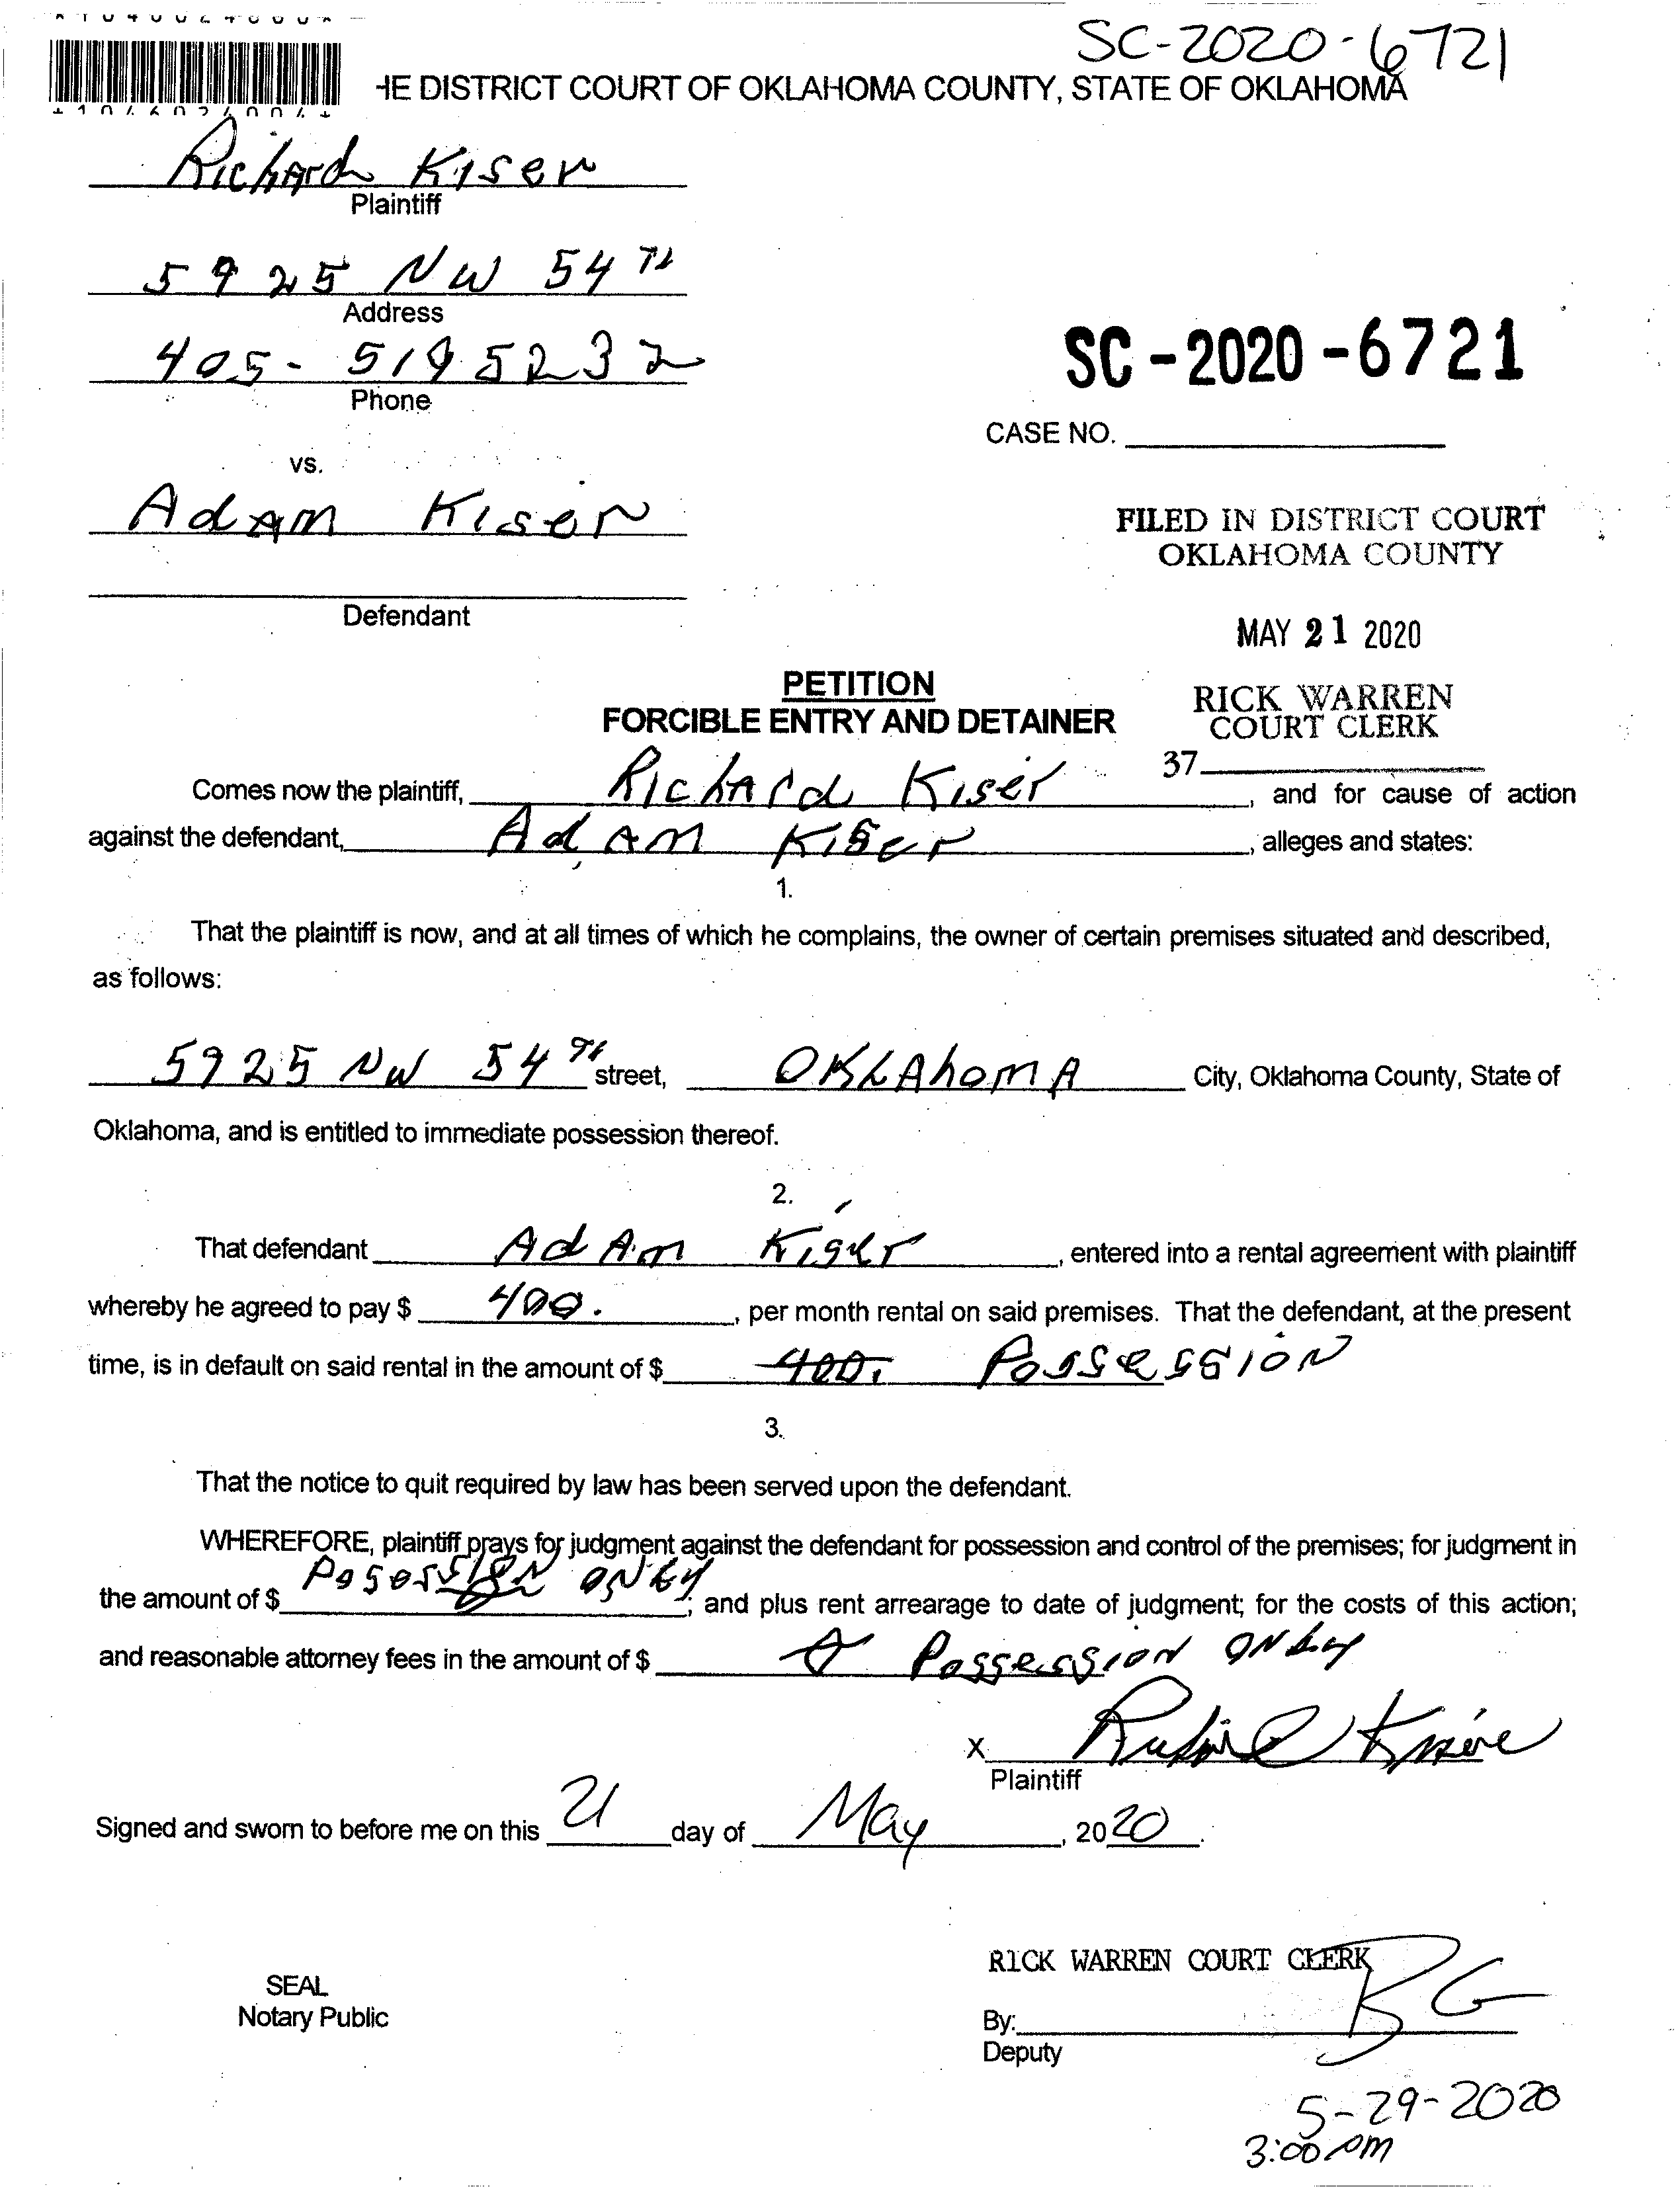 SC-2020-6721
HE DISTRICT COURT OF OKLAHOMA COUNTY, STATE OF OKLAHOMA
Richard Kiser
Plaintiff
5925 NW 54 Th
Address
405-519 5232
Phone
SC-2020-6721
CASE NO.
vs.
Adam Kiser
FILED IN DISTRICT COURT
OKLAHOMA COUNTY
Defendant
MAY 21 2020
PETITION
FORCIBLE ENTRY AND DETAINER
RICK WARREN
COURT CLERK
37
Comes now the plaintiff, Richard Kiser, and for cause of action
against the defendant, Adam Kiser, alleges and states:
1.
That the plaintiff is now, and at all times of which he complains, the owner of certain premises situated and described,
as follows:
5925 NW 54 Th street, OKLAhomA City, Oklahoma County, State of
Oklahoma, and is entitled to immediate possession thereof.
2.
That defendant Adam Kiser, entered into a rental agreement with plaintiff
whereby he agreed to pay $ 400., per month rental on said premises. That the defendant, at the present
time, is in default on said rental in the amount of $ 400. Possession
3.
That the notice to quit required by law has been served upon the defendant.
WHEREFORE, plaintiff prays for judgment against the defendant for possession and control of the premises; for judgment in
the amount of $ ONLY; and plus rent arrearage to date of judgment; for the costs of this action;
and reasonable attorney fees in the amount of $ Possession ONLY
X
Plaintiff
Signed and sworn to before me on this 21 day of May, 2020.
RICK WARREN COURT CLERK
SEAL
Notary Public
By: BG
Deputy
5-29-2020
3:00 pm